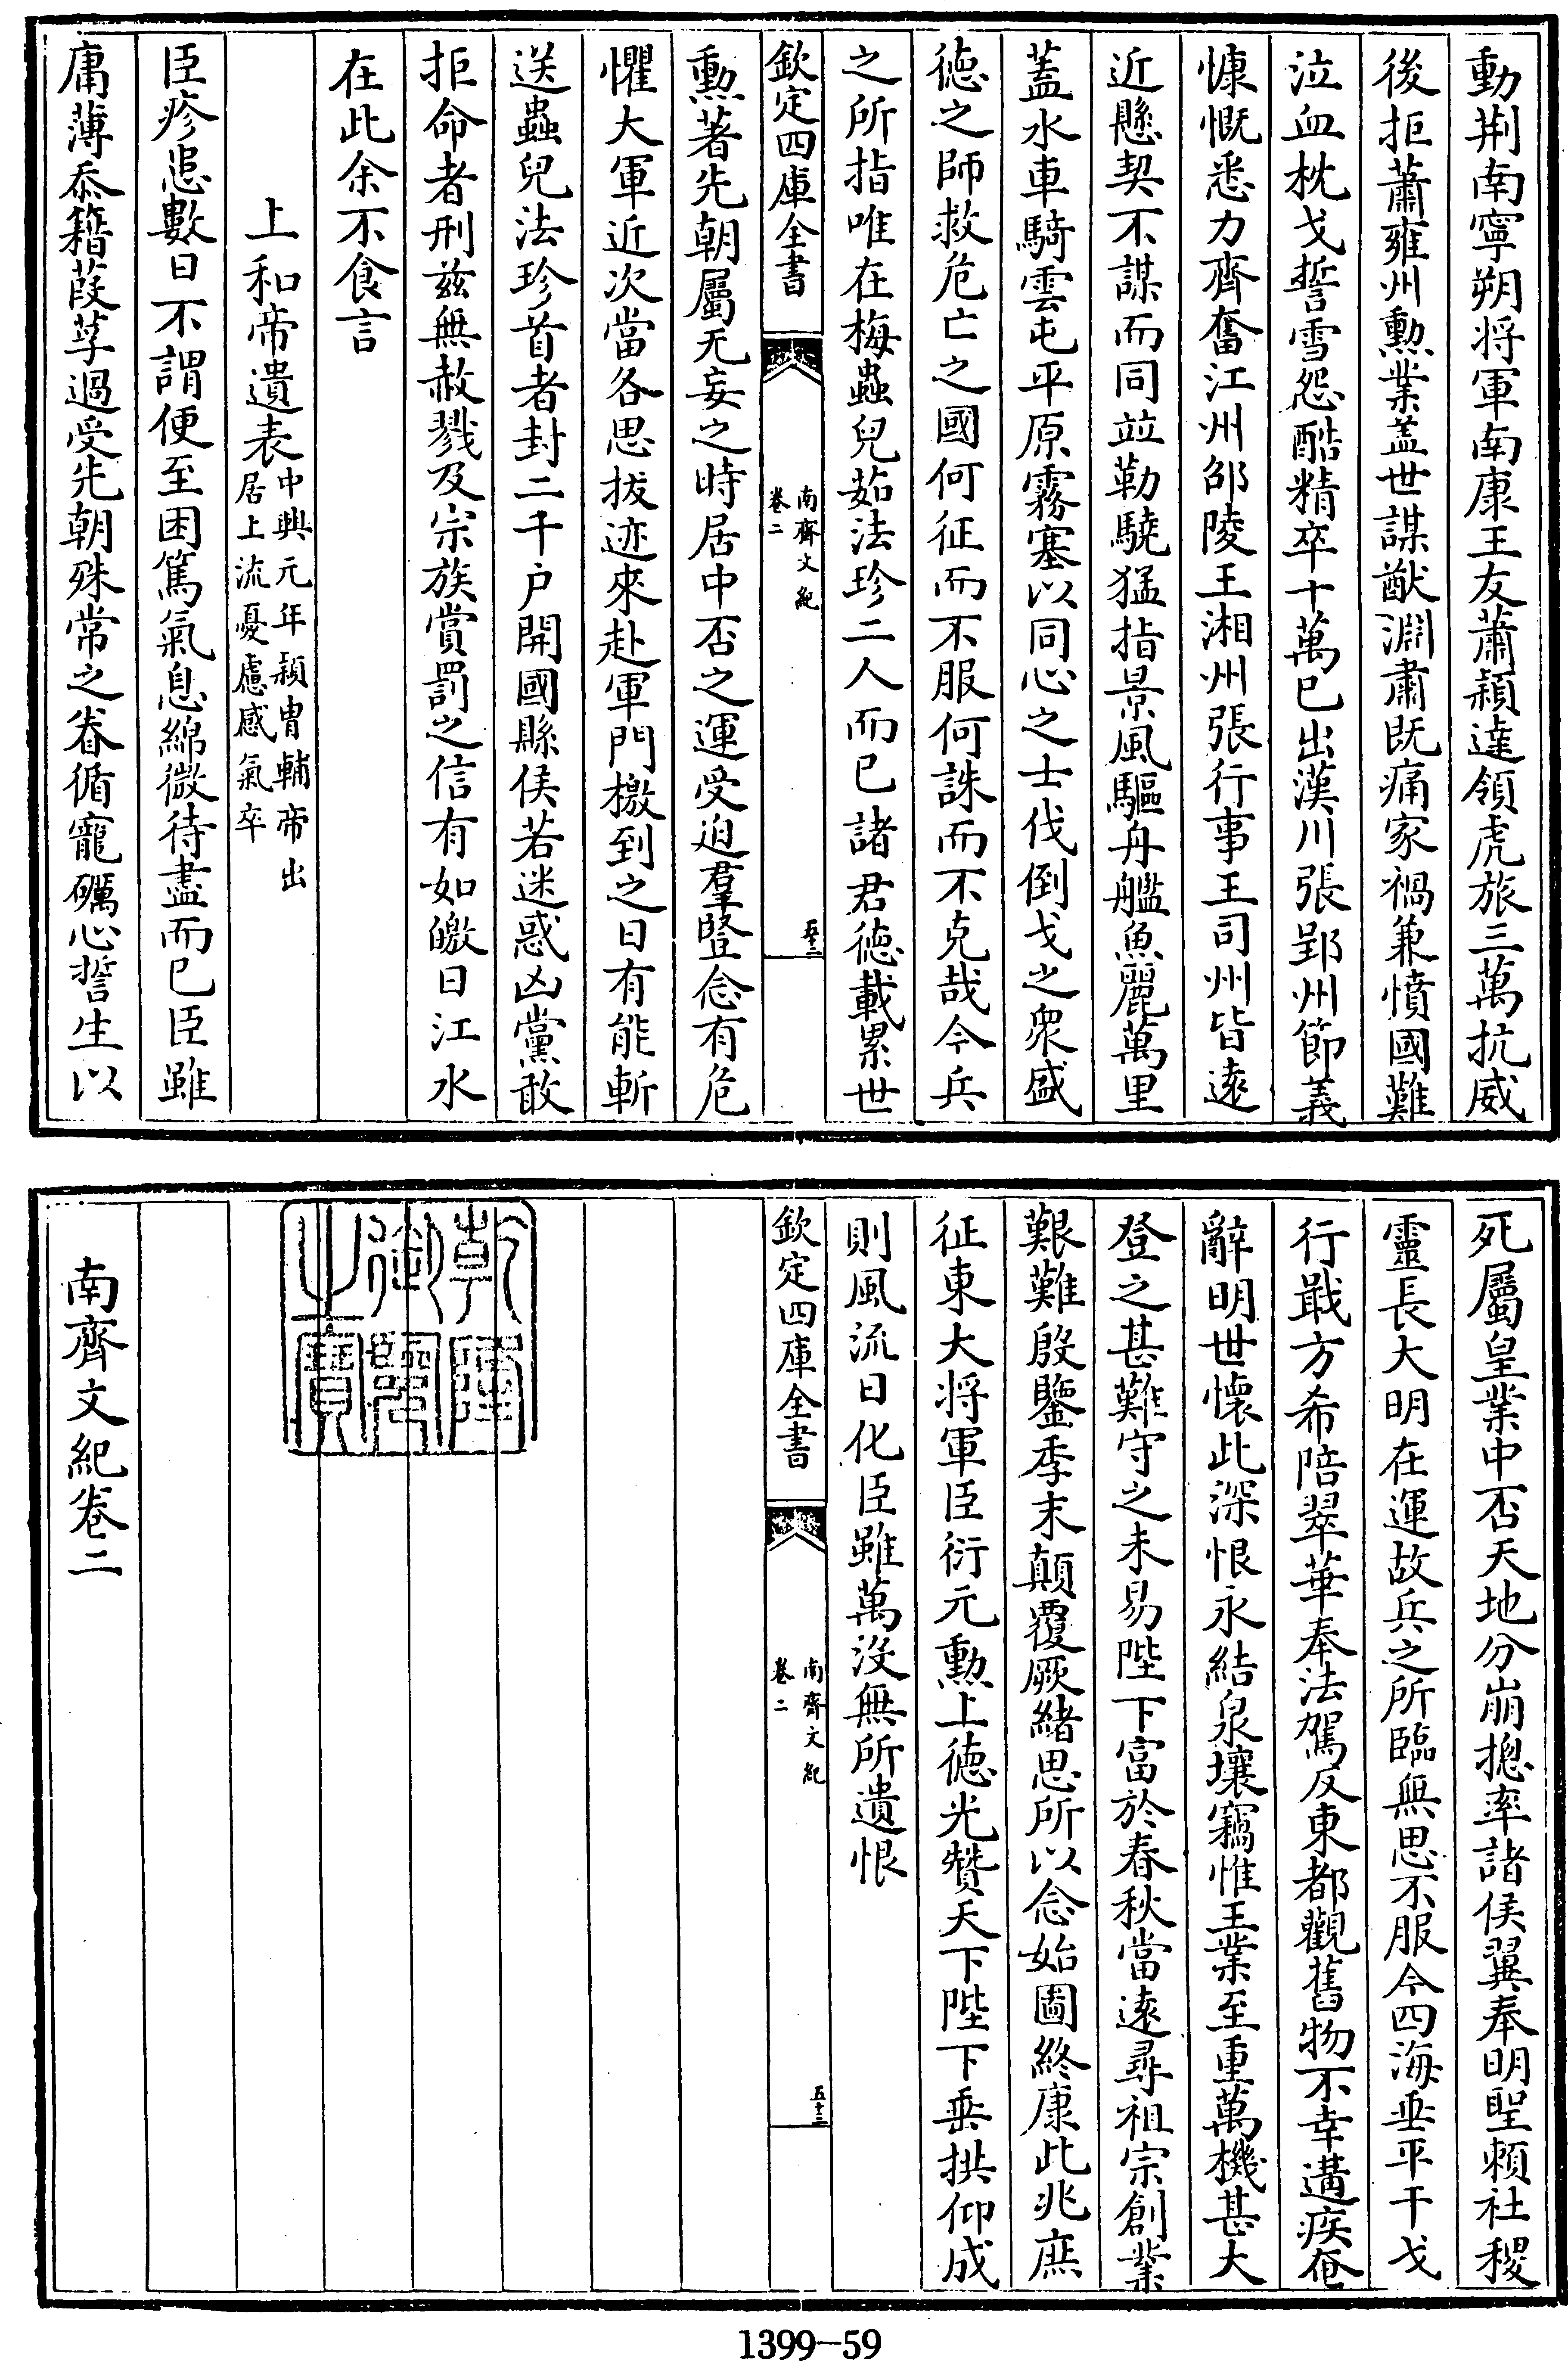 動荆南寧朔将軍南康王友蕭穎達領虎旅三萬抗威
後拒蕭雍州勲業蓋世謀猷淵肅既痛家禍兼憤國難
泣血枕戈誓雪怨酷精卒十萬已出漢川張郢州節義
慷慨悉力齊奮江州邵陵王湘州張行事王司州皆遠
近懸契不謀而同竝勒驍猛指景風驅舟艦魚麗萬里
蓋水車騎雲屯平原霧塞以同心之士伐倒戈之衆盛
徳之師救危亡之國何征而不服何誅而不克哉今兵
之所指唯在梅蟲兒茹法珍二人而已諸君徳載累世
欽定四庫全書
南齊文紀
卷二
五十二
勲著先朝屬无妄之時居中否之運受迫羣豎念有危
懼大軍近次當各思拔迹來赴軍門檄到之日有能斬
送蟲兒法珍首者封二千户開國縣侯若迷惑凶黨敢
拒命者刑兹無赦戮及宗族賞罰之信有如皦日江水
在此余不食言
上和帝遺表中興元年穎胄輔帝出
居上流憂慮感氣卒
臣疹患數日不謂便至困篤氣息綿微待盡而已臣雖
庸薄忝籍葭莩過受先朝殊常之眷循寵礪心誓生以
死屬皇業中否天地分崩摠率諸侯翼奉明聖頼社稷
靈長大明在運故兵之所臨無思不服今四海垂平干戈
行戢方希陪翠華奉法駕反東都觀舊物不幸遘疾奄
辭明世懷此深恨永結泉壤竊惟王業至重萬機甚大
登之甚難守之未易陛下富於春秋當遠尋祖宗創業
艱難殷鑒季末顛覆厥緒思所以念始圖終康此兆庶
征東大将軍臣衍元勲上徳光贊天下陛下垂拱仰成
則風流日化臣雖萬没無所遺恨
欽定四庫全書
南齊文紀
卷二
五十三
乾隆御覽之寶
南齊文紀卷二
1399-59